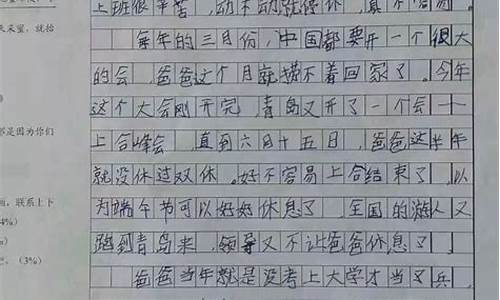 上班很辛苦,动不动就停休,真不容易。
每年的三月份,中国都要开一个很大
的会,爸爸这个月就捞不着回家了。今年
这个大会刚开完,青岛又开了一个会——
上合峰会,直到六月十五日,爸爸这半年
就没休过双休。好不容易上合结束了,以
为端午节可以好好休息了,全国的游人又
跑到青岛来,领导又不让爸爸休息了。
爸爸当年就是没考上大学才当了兵,
是因为你们
联系上下
4%)
(3%)